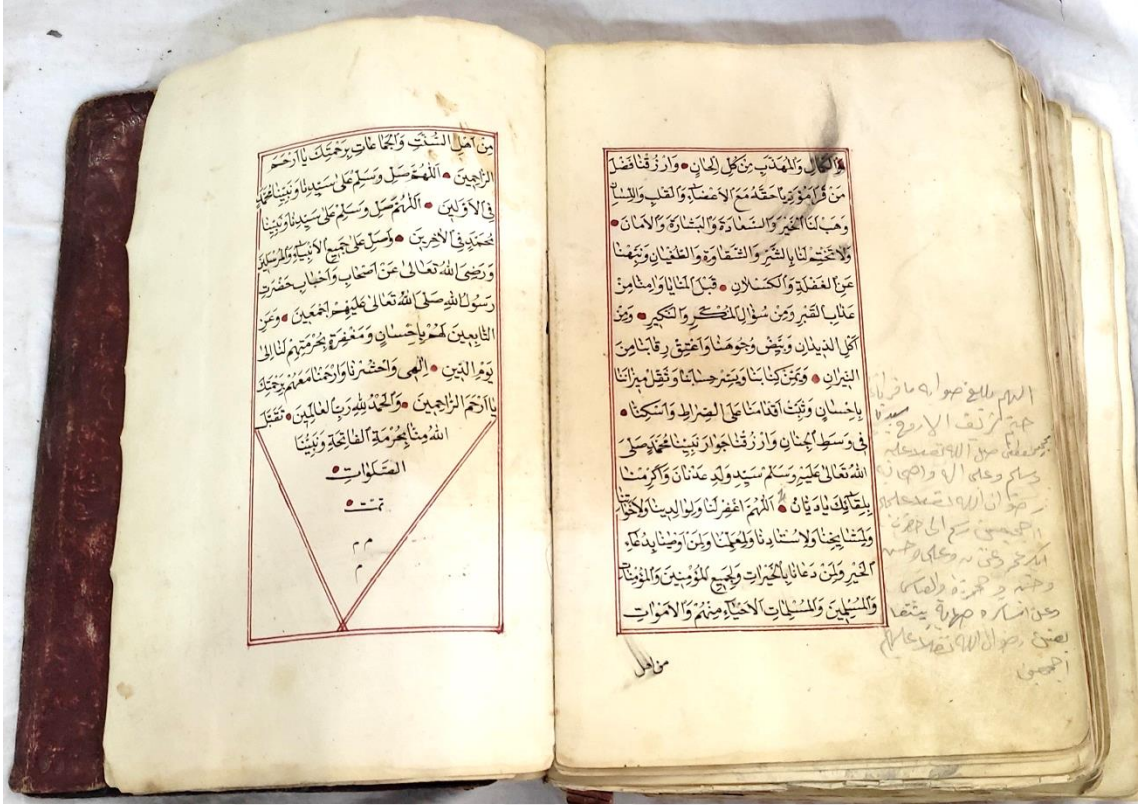 والكمال والمهذب من كل الحان وارزقنا فضل
من قرأ مؤديا حقه مع الأعضاء والقلب واللسان
وهب لنا الخير والسعادة والبشارة والأمان
ولا تختم لنا بالشر والشقاوة والطغيان ونبهنا
عن الغفلة والكسلان قبل المنايا وامنا من
عذاب القبر ومن سؤال المنكر والنكير ومن
أكل الديدان وبيض وجوهنا واعتق رقابنا من
النيران ويمن كتابنا ويسر حسابنا وثقل ميزاننا
بإحسان وثبت أقدامنا على الصراط واسكنا
في وسط الجنان وارزقنا جوار نبينا محمد صلى
الله تعالى عليه وسلم سيد ولد عدنان وأكرمنا
بلقائك يا ديان اللهم اغفر لنا ولوالدينا
ولمشايخنا ولاستادنا ولمعلمنا ولمن أوصنا بدعاء
الخير ولمن دعانا بالخيرات ولجميع المؤمنين والمؤمنات
والمسلمين والمسلمات الأحياء منهم والأموات
من اهل
اللهم بلغ
الارواح
صلى الله تعالى عليه
وسلم وعلى اله
رضوان الله تعالى
رضوان الله تعالى عليهم
اجمعين
من أهل السنت والجماعات برحمتك يا أرحم
الراحمين اللهم صل وسلم على سيدنا ونبينا محمد
في الأولين اللهم صل وسلم على سيدنا ونبينا
محمد في الآخرين وصل على جميع الأنبياء والمرسلين
ورضى الله تعالى عن أصحاب وأحباب حضرت
رسول الله صلى الله تعالى عليهم أجمعين وعن
التابعين لهم بإحسان ومغفرة بحرمتهم لنا إلى
يوم الدين إلهي واحشرنا وارحمنا معهم برحمتك
يا أرحم الراحمين والحمد لله رب العالمين تقبل
الله منا بحرمة الفاتحة ونبينا
الصلوات
تمت
م م
م